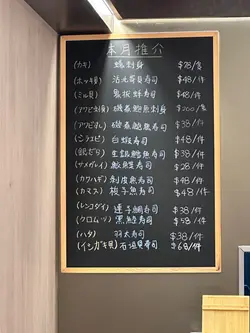 本月推介
(カキ) 蠔刺身 $78/客
(ホッキ貝) 活北寄貝寿司 $48/件
(ミル貝) 象拔蚌寿司 $48/件
(アワビ大将) 磯煮鮑魚刺身 $200/客
(アワビすし) 磯煮鮑魚寿司 $38/件
(シラエビ) 白蝦寿司 $48/件
(銀ダラ) 生銀鱈魚寿司 $38/件
(サメガレイ) 鮫鰈寿司 $28/件
(カワハギ) 剝皮魚寿司 $48/件
(カマス) 梭子魚寿司 $48/件
(レンコダイ) 連子鯛寿司 $38/件
(クロムツ) 黑鯥寿司 $58/件
(ハタ) 羽太寿司 $38/件
(イシガキ貝) 石垣貝寿司 $68/件